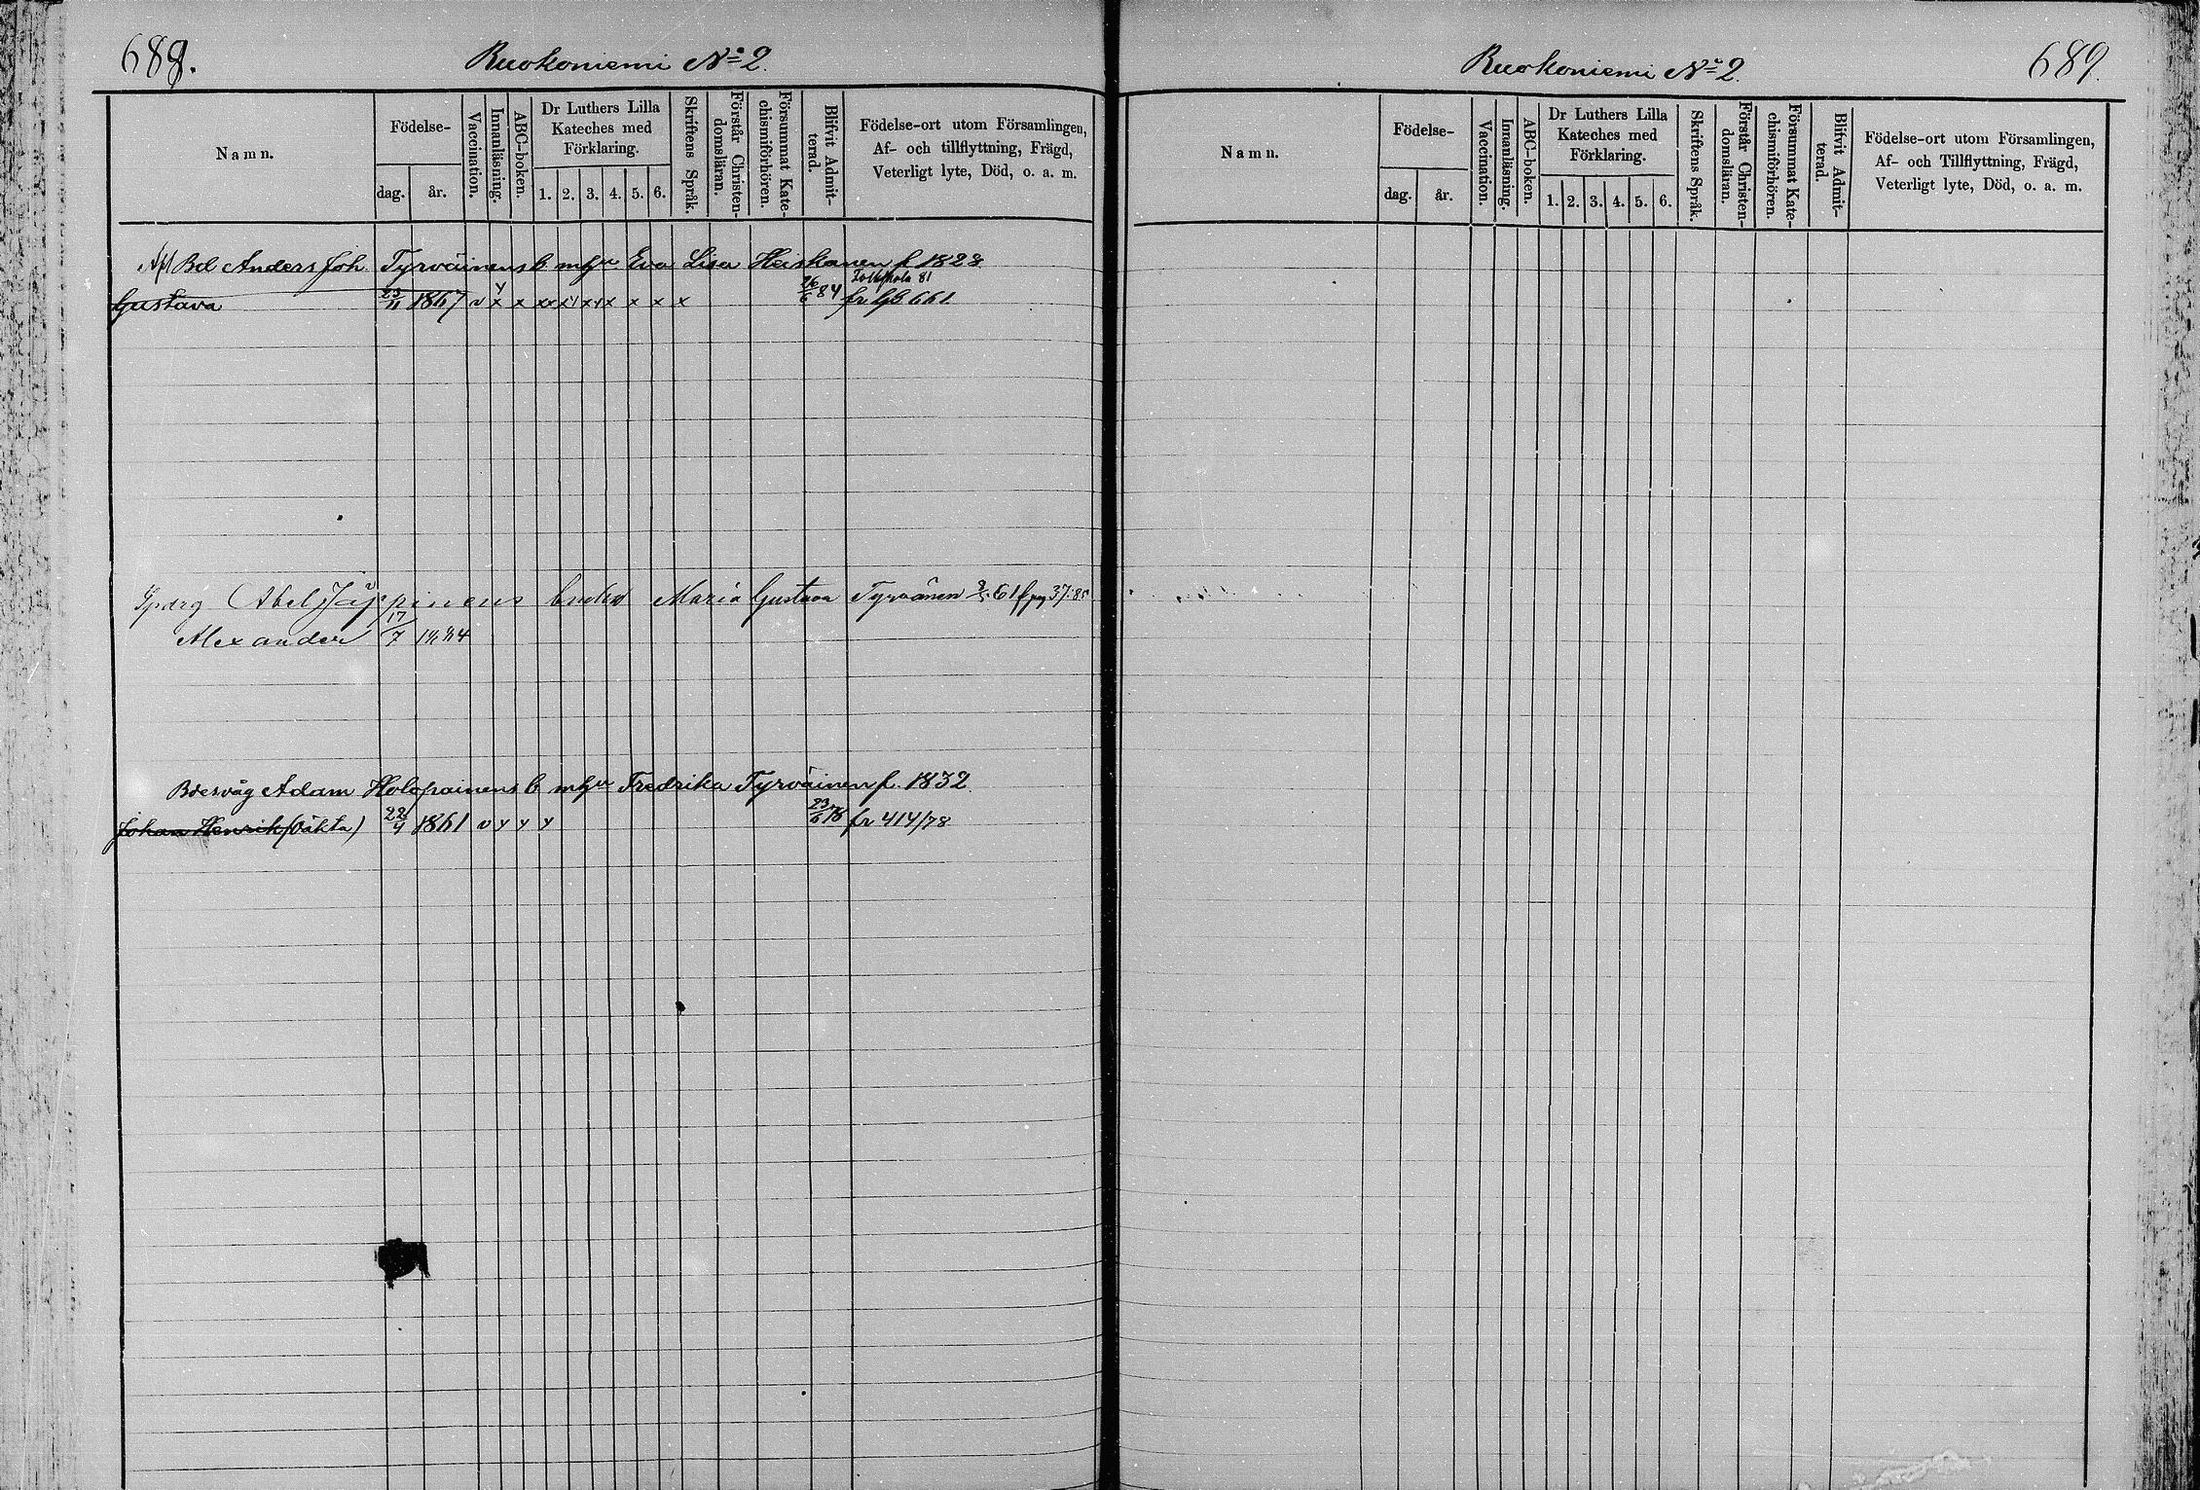 688.
Ruokoniemi No 2.
Namn.
Födelse-
dag.
år.
Vaccination.
Innanläsning.
ABC-boken.
Dr Luthers Lilla
Kateches med
Förklaring.
1. 2. 3. 4. 5. 6.
Skriftens Språk.
Förstår Christen-
domsläran.
Försummat Kate-
chismiförhören.
Blifvit Admit-
terad.
Födelse-ort utom Församlingen,
Af- och tillflyttning, Frägd,
Veterligt lyte, Död, o. a. m.
Afl Bd Anders Joh. Tyrväinens b m hu Eva Lisa Heiskanen f. 1828
Gustava 23/11 1867 v x x xx x x x x x x 26/6 84 fr 661
Abel Jäppinens Maria Gustava Tyrvänen 61 37:85
Alexander 17/7 1884
Adam Holopainens b m hu Fredrika Tyrväinen f. 1832.
Johan Henrik (oäkta) 22/4 1861 v y y y 23/6 78 fr 414/78
Ruokoniemi No 2.
689.
Namn.
Födelse-
dag.
år.
Vaccination.
Innanläsning.
ABC-boken.
Dr Luthers Lilla
Kateches med
Förklaring.
1. 2. 3. 4. 5. 6.
Skriftens Språk.
Förstår Christen-
domsläran.
Försummat Kate-
chismiförhören.
Blifvit Admit-
terad.
Födelse-ort utom Församlingen,
Af- och Tillflyttning, Frägd,
Veterligt lyte, Död, o. a. m.